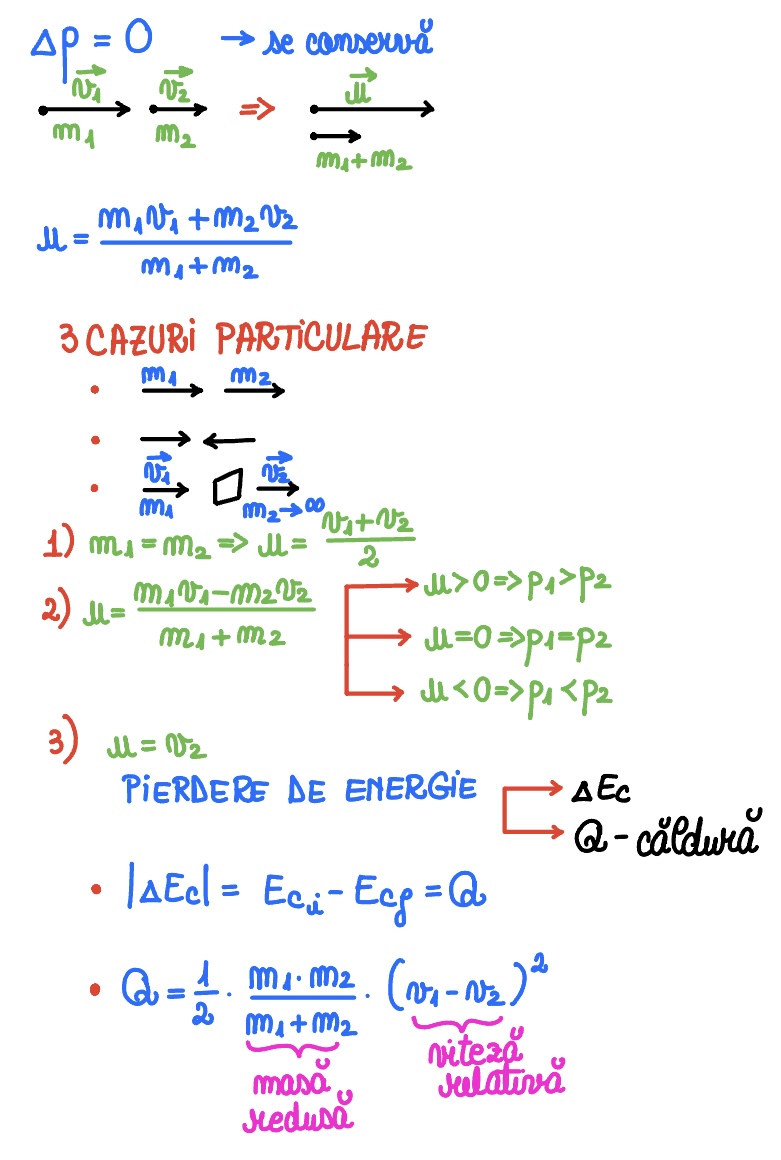 Δp = 0 → se conservă
v₁ v₂ ⇒ u
m₁ m₂ m₁+m₂
u = (m₁v₁ + m₂v₂)/(m₁ + m₂)
3 CAZURi PARTiCULARE
• m₁ m₂
•
• v₁ v₂
m₁ m₂→∞
1) m₁ = m₂ => u = (v₁+v₂)/2
2) u = (m₁v₁-m₂v₂)/(m₁ + m₂)
u > 0 => p₁ > p₂
u = 0 => p₁ = p₂
u < 0 => p₁ < p₂
3) u = v₂
PiERDERE DE ENERGiE
ΔEc
Q - căldură
• |ΔEc| = Ec,i - Ecf = Q
• Q = 1/2 · (m₁·m₂)/(m₁+m₂) · (v₁-v₂)²
masă redusă
viteză relativă